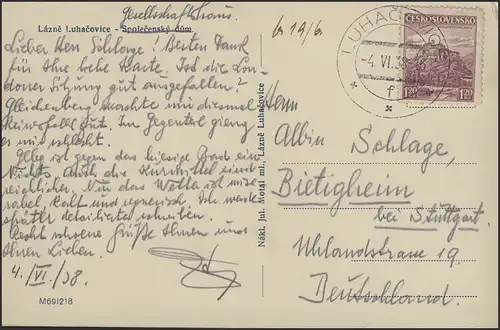 Gesellschaftshaus.
Lázně Luhačovice - Společenský dům
b 19/6
Lieber Herr Schlage! Besten Dank
für Ihre liebe Karte. Ist die Lon-
doner Sitzung gut ausgefallen?
Gleichenberg machte mir diesmal
keineswegs gut. Im Gegenteil gieng
es mir schlecht.
ist gegen das hiesige Grad ein
Nichts, auch die Kurmittel sind
reichlicher. Nur das Wetter ist mise-
rabel, kalt und regnerisch. Ich werde
später detaillierter schreiben.
Recht schöne Grüße Ihnen und
Ihren Lieben.
4./VI./38.
M691218
Nákl. Jul. Motal ml., Lázně Luhačovice
LUHAČOVICE
-4. VI. 38
f
ČESKOSLOVENSKO
1.20 1.20
Herrn
Albin Schlage,
Bietigheim
bei Stuttgart.
Uhlandstrasse 19
Deutschland.